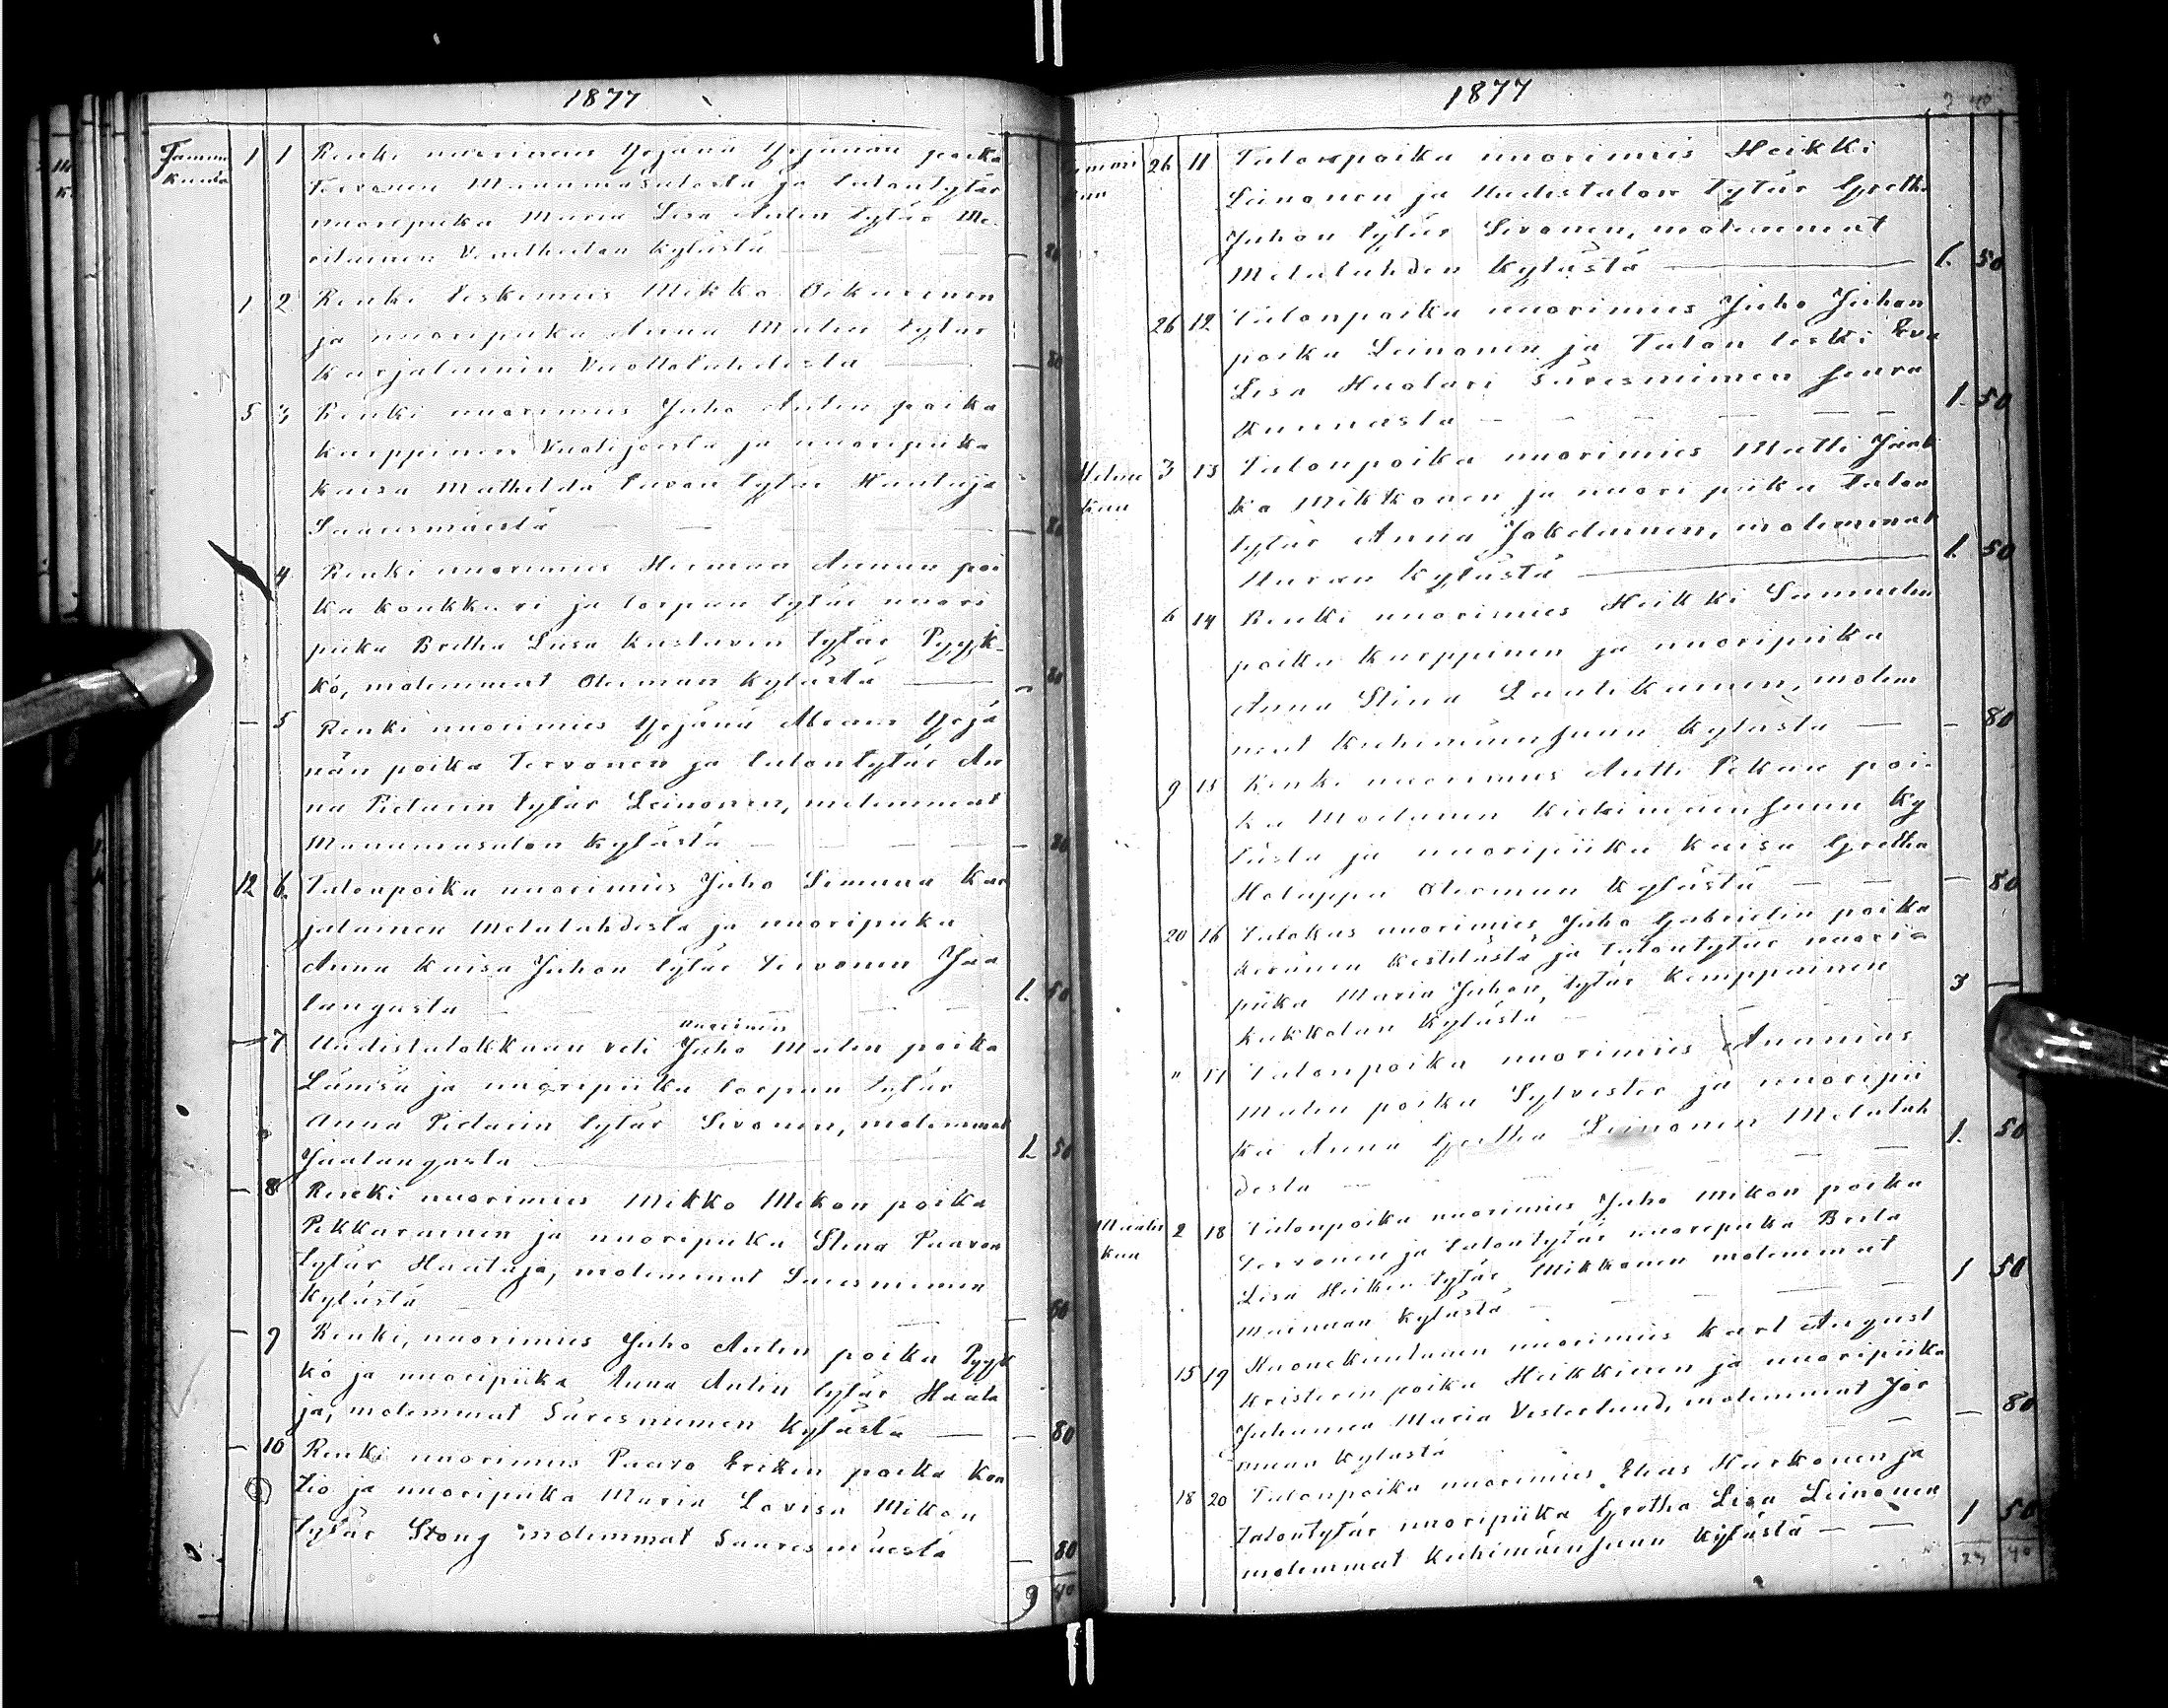 1877
Tammi 1 1 Renki nuorimies Yrjänä Yrjänän poika
kuuta Tervonen Manamasalosta ja talontytär
nuoripiika Maria Lisa Antin tytär Me-
riläinen Venetheiton kylästä — 80
1 2 Renki leskimies Mikko Oikarinen
ja nuoripiika Anna Matin tytär
Karjalainen Vuottolahdesta — 80
5 3 Renki nuorimies Juho Antin poika
Karppinen Vuolijoesta ja nuoripiika
Kaisa Mathilda Paavon tytär Hautaja
Saaresmäestä — 80
4 Renki nuorimies Herman Annan poi
ka Koukkari ja torpan tytär nuori
piika Bretha Liisa Kustavin tytär Pyyk-
kö, molemmat Oterman kylästä — 80
— 5 Renki nuorimies Yrjänä Abram Yrjä
nän poika Tervonen ja talontytär An
na Pietarin tytär Leinonen, molemmat
Manamasalon kylästä — 80
12 6. Talonpoika nuorimies Juho Simuna Kar
jalainen Melalahdesta ja nuoripiika
Anna Kaisa Juhon tytär Tervonen Jaa
langasta 1. 50
nuorimies
— 7 Uudistalokkaan veli Juho Matin poika
Länisä ja nuoripiika torpan tytär
Anna Pietarin tytär Sivonen, molemmat
Jaalangasta 1. 50
— 8 Renki nuorimies Mikko Mikon poika
Pikkarainen ja nuoripiika Stina Paavon
tytär Hautaja, molemmat Saaresmäen
kylästä — 80
— 9 Renki, nuorimies Juho Antin poika Pyyk
kö ja nuoripiika Anna Antin tytär Hauta
ja, molemmat Säresniemen kylästä — 80
— 10 Renki nuorimies Paavo Erikin poika Kon
tio ja nuoripiika Maria Lovisa Mikon
tytär Stong molemmat Saaresmäestä — 80
9 40
1877
26 11 Talonpoika nuorimies Heikki
Leinonen ja Uudistalon tytär Gretha
Juhon tytär Sivonen, molemmat
Melalahden kylästä 1. 50
26 12 Talonpoika nuorimies Juho Juhon
poika Leinonen ja Talon leski Eva
Lisa Huotari Säresniemen seura
kunnasta 1. 50
Helmi 3 13 Talonpoika nuorimies Matti Jaak
kuu ko Mikkonen ja nuori piika Talon
tytär Anna Jokelainen, molemmat
Uuran kylästä 1. 50
6 14 Renki nuorimies Heikki Samuelin
poika Karppinen ja nuoripiika
Anna Stina Luutikainen, molem
mat Kuhimäensuun kylästä — 80
9 15 Renki nuorimies Antti Pekan poi-
ka Moilanen Kuhimäensuun ky
lästä ja nuoripiika Kaisa Gretha
Holappa Oterman kylästä — 80
20 16 Talokas nuorimies Juho Gabrielin poika
Keränen Kestilästä ja talontytär nuori-
piika Maria Juhon tytär Kemppainen
Kukkolan kylästä 3 —
" 17 Talonpoika nuorimies Ananias
Matin poika Sylvester ja nuoripii
ka Anna Gretha Leinonen Melalah
desta 1. 50
Maalis 2 18 Talonpoika nuorimies Juho Mikon poika
kuu Tervonen ja talontytär nuoripiika Brita
Lisa Heikin tytär Mikkonen molemmat
Mainuan kylästä 1 50
15 19 Huonekuntainen nuorimies Karl August
Kristerin poika Heikkinen ja nuoripiika
Juhanna Maria Vesterlund, molemmat Jor
muan kylästä — 80
18 20 Talonpoika nuorimies Elias Härkönen ja
talontytär nuoripiika Gretha Lisa Leinonen
molemmat Kuhimäensuun kylästä 1 50